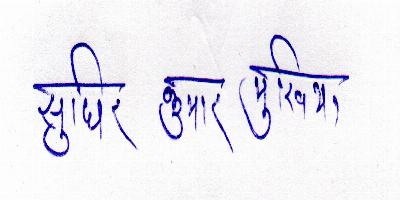 सुधिर कुमार मुखिया